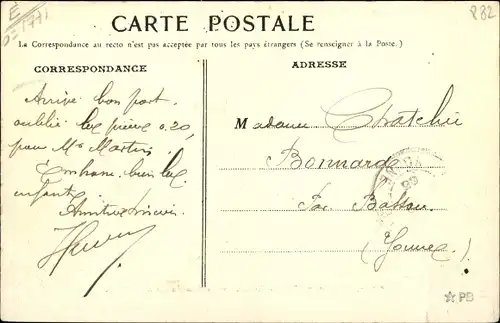 CARTE POSTALE
882
La Correspondance au recto n'est pas acceptée par tous les pays étrangers (Se renseigner à la Poste.)
CORRESPONDANCE
ADRESSE
Arrivé bon port
oublié les 0,20
pour Mr Martin
Embrasse bien les
enfants
Madame
Bonnard
Par Bassou
(Yonne)
PB